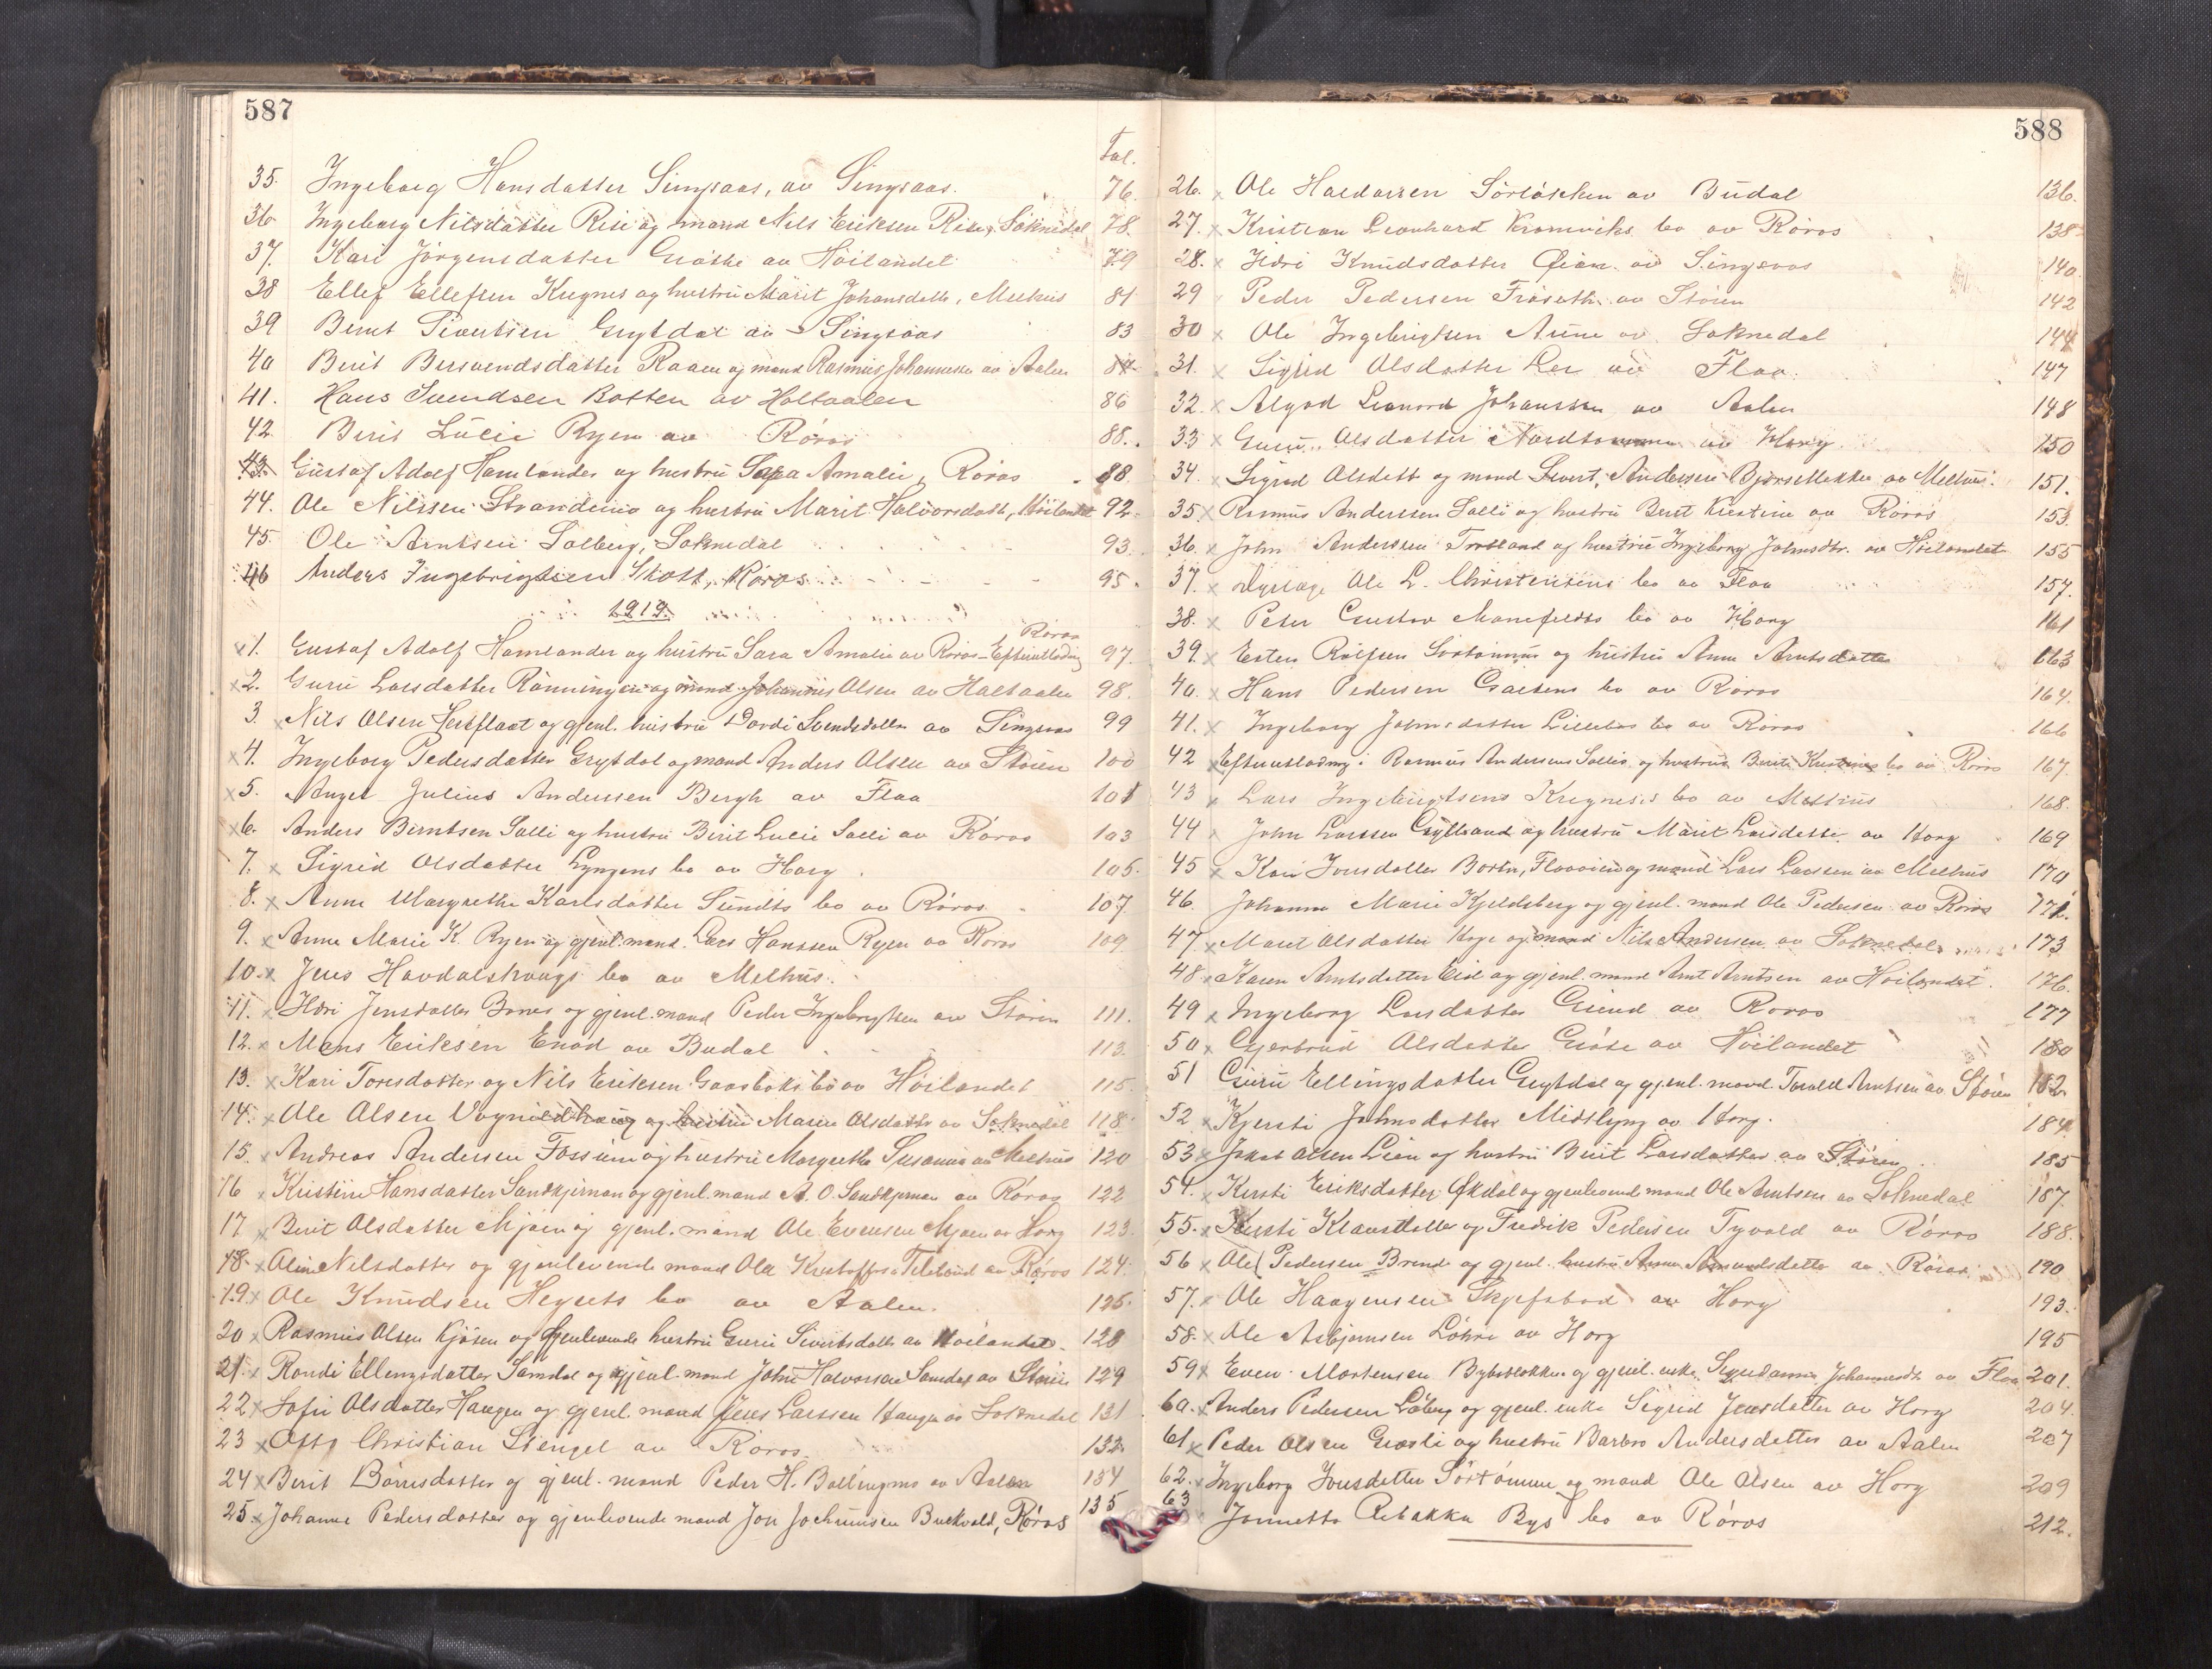 587
Fol.
35. Ingeborg Hansdatter Singsaas, av Singsaas. 76.
36 Ingeborg Nilsdatter Rise og mand Nils Eriksen Rise, Soknedal 78.
37. Kari Jörgensdatter Gröthe av Höilandet 79
38 Ellef Ellefsen Kregnes og hustru Marit Johansdatt., Melhus 81
39 Bernt Sivertsen Grytdal av Singsaas 83
40 Berit Bersvendsdatter Raaen og mand Rasmus Johannesen av Aalen 84
41. Hans Svendsen Botten av Holtaalen 86
42. Berit Lucie Ryen av Röros 88.
43. Gustaf Adolf Hamlander og hustru Sara Amalie, Röros 88.
44. Ole Nilssen Strandmo og hustru Marit Halvorsdatt., Höilandet 92.
45. Ole Arntsen Solberg, Soknedal 93.
46 Anders Ingebrigtsen Skott, Röros 95.
1919.
x 1. Gustaf Adolf Hamlander og hustru Sara Amalie av Röros - Efterutlodning Röros 97.
x 2. Guru Larsdatter Rönningen og mand Johannis Olsen av Holtaalen 98.
3. x Nils Olsen Herfflaat og gjenl. hustru Dordi Svendsdatter av Singsaas 99
x 4. Ingeborg Pedersdatter Grytdal og mand Anders Olsen av Stören 100
x 5. Anger Julius Anderssen Bergh av Flaa 101
x 6. Anders Berntsen Galli og hustru Berit Lucie Galli av Röros 103
7. x Sigrid Olsdatter Lyngens bo av Horg 105.
8. x Anne Margrethe Karlsdatter Sundts bo av Röros 107.
9. x Anne Marie K. Ryen og gjenl. mand Lars Hanssen Ryen av Röros 109
10. x Jens Havdalshaugs bo av Melhus.
11. x Idri Jensdatter Bones og gjenl. mand Peder Ingebrigtsen av Stören 111.
12. x Mons Eriksen Enod av Budal 113.
13. x Kari Toresdatter og Nils Eriksen Gaasbaks bo av Höilandet 115.
14. x Ole Olsen Vognildhaug og hustru Marie Olsdatter av Soknedal 118.
15. x Andreas Andersen Fossum og hustru Margrethe Susanna av Melhus 120
16 x Kristine Hansdatter Sandkjernan og gjenl. mand A. O. Sandkjernan av Röros 122
17 x Berit Olsdatter Mjoen og gjenl. mand Ole Evensen Mjoen av Horg 123.
18. x Oline Nilsdatter og gjenlevende mand Ole Kristoffersen av Röros 124.
19. x Ole Knudsen Hegsets bo av Aalen. 125.
20 x Rasmus Olsen Kjösen og gjenlevende hustru Guru Sivertsdatter av Höilandet 128
21. x Randi Ellingsdatter Samdal og gjenl. mand John Halvorssen Samdal av Stören 129
22. x Sofie Olsdatter Haugen og gjenl. mand Jens Larssen Haugen av Soknedal 131
23 x Otto Christian Stengel av Röros. 132.
24 x Berit Börresdatter og gjenl. mand Peder H. Bollingmo av Aalen 134
25. x Johanne Pedersdatter og gjenlevende mand Jon Jochumsen Buekvold, Röros 135
588
26. x Ole Haldorsen Sörlöschen av Budal 136.
27. x Kristian Leonhard Kromviks bo av Röros 138.
28. x Idri Knudsdatter Öien av Singsaas 140.
29 Peder Pedersen Fröseth av Stören 142
30 x Ole Ingebrigtsen Aune av Soknedal 144
31. x Sigrid Olsdatter Ler av Flaa. 147
32. x Algod Leonard Johanssen av Aalen 148
33 x Guru Olsdatter av Horg 150
34. x Sigrid Olsdatt og mand Sivert Andersen av Melhus. 151.
35. x Rasmus Anderssen Galli og hustru Berit Kristine av Röros 153.
36. x John Anderssen Trotland og hustru Ingeborg Johnsdtr. av Höilandet 155
37. x Dyrlæge Ole L. Christensens bo av Flaa 157.
38. x Peter Gustav Manefeldts bo av Horg 161
39. x Esten Rolfsen Sörtömme og hustru Ane Arntsdatter 163
40. x Hans Pedersen Galtens bo av Röros 164.
41. x Ingeborg Johnsdatter Lillebos bo av Röros 166
42 x Efterutlodning i Rasmus Anderssens Gallis og hustrus Berit Kristines bo av Röros 167.
43 x Lars Ingebrigtsens Kregneses bo av Melhus 168.
44 John Larssen Gylland og hustru Marit Larsdatter av Horg 169
45 x Kari Jonsdatter Borten, Flaaoien og mand Lars Larssen av Melhus 170
46. Johanna Marie Kjeldsberg og gjenl. mand Ole Pedersen av Röros 171.
47 x Marit Olsdatter Hage og mand Nils Andersen av Soknedal 173
48. x Karen Arntsdatter Eid og gjenl. mand Arnt Arntsen av Höilandet. 176.
49 x Ingeborg Larsdatter Grind av Röros 177
50 x Gjertrud Olsdatter Gröte av Höilandet 180
51 Guru Ellingsdatter Grytdal og gjenl. mand Torald Arntsen av Stören 182.
52 x Kjersti Johnsdatter Midtlyng av Horg. 184.
53. x Jakob Olsen Lien og hustru Berit Larsdatter av Stören 185
54. x Kirsti Eriksdatter Økdal og gjenlevende mand Ole Arntsen av Soknedal 187.
55. x Kirsti Klausdatter og Fredrik Pedersen Tyvold av Röros 188.
56 x Ole Pedersen Brende og gjenl. hustru Anna Amundsdatter av Röros 190
57. x Ole Haagensen Skjefstad av Horg 193.
58. x Ole Asbjörnsen Löhre av Horg 195
59 x Even Mortensen og gjenl. enke Johannesdtr. av Flaa 201.
60. x Anders Pedersen Löberg og gjenl. enke Sigrid Jensdatter av Horg 204.
61 x Peder Olsen Græsli og hustru Barbro Andersdatter av Aalen 207
62. x Ingeborg Jonsdatter Sörtömme og mand Ole Olsen av Horg 209
63 Jannetta Rebakka Bys bo av Röros 212.